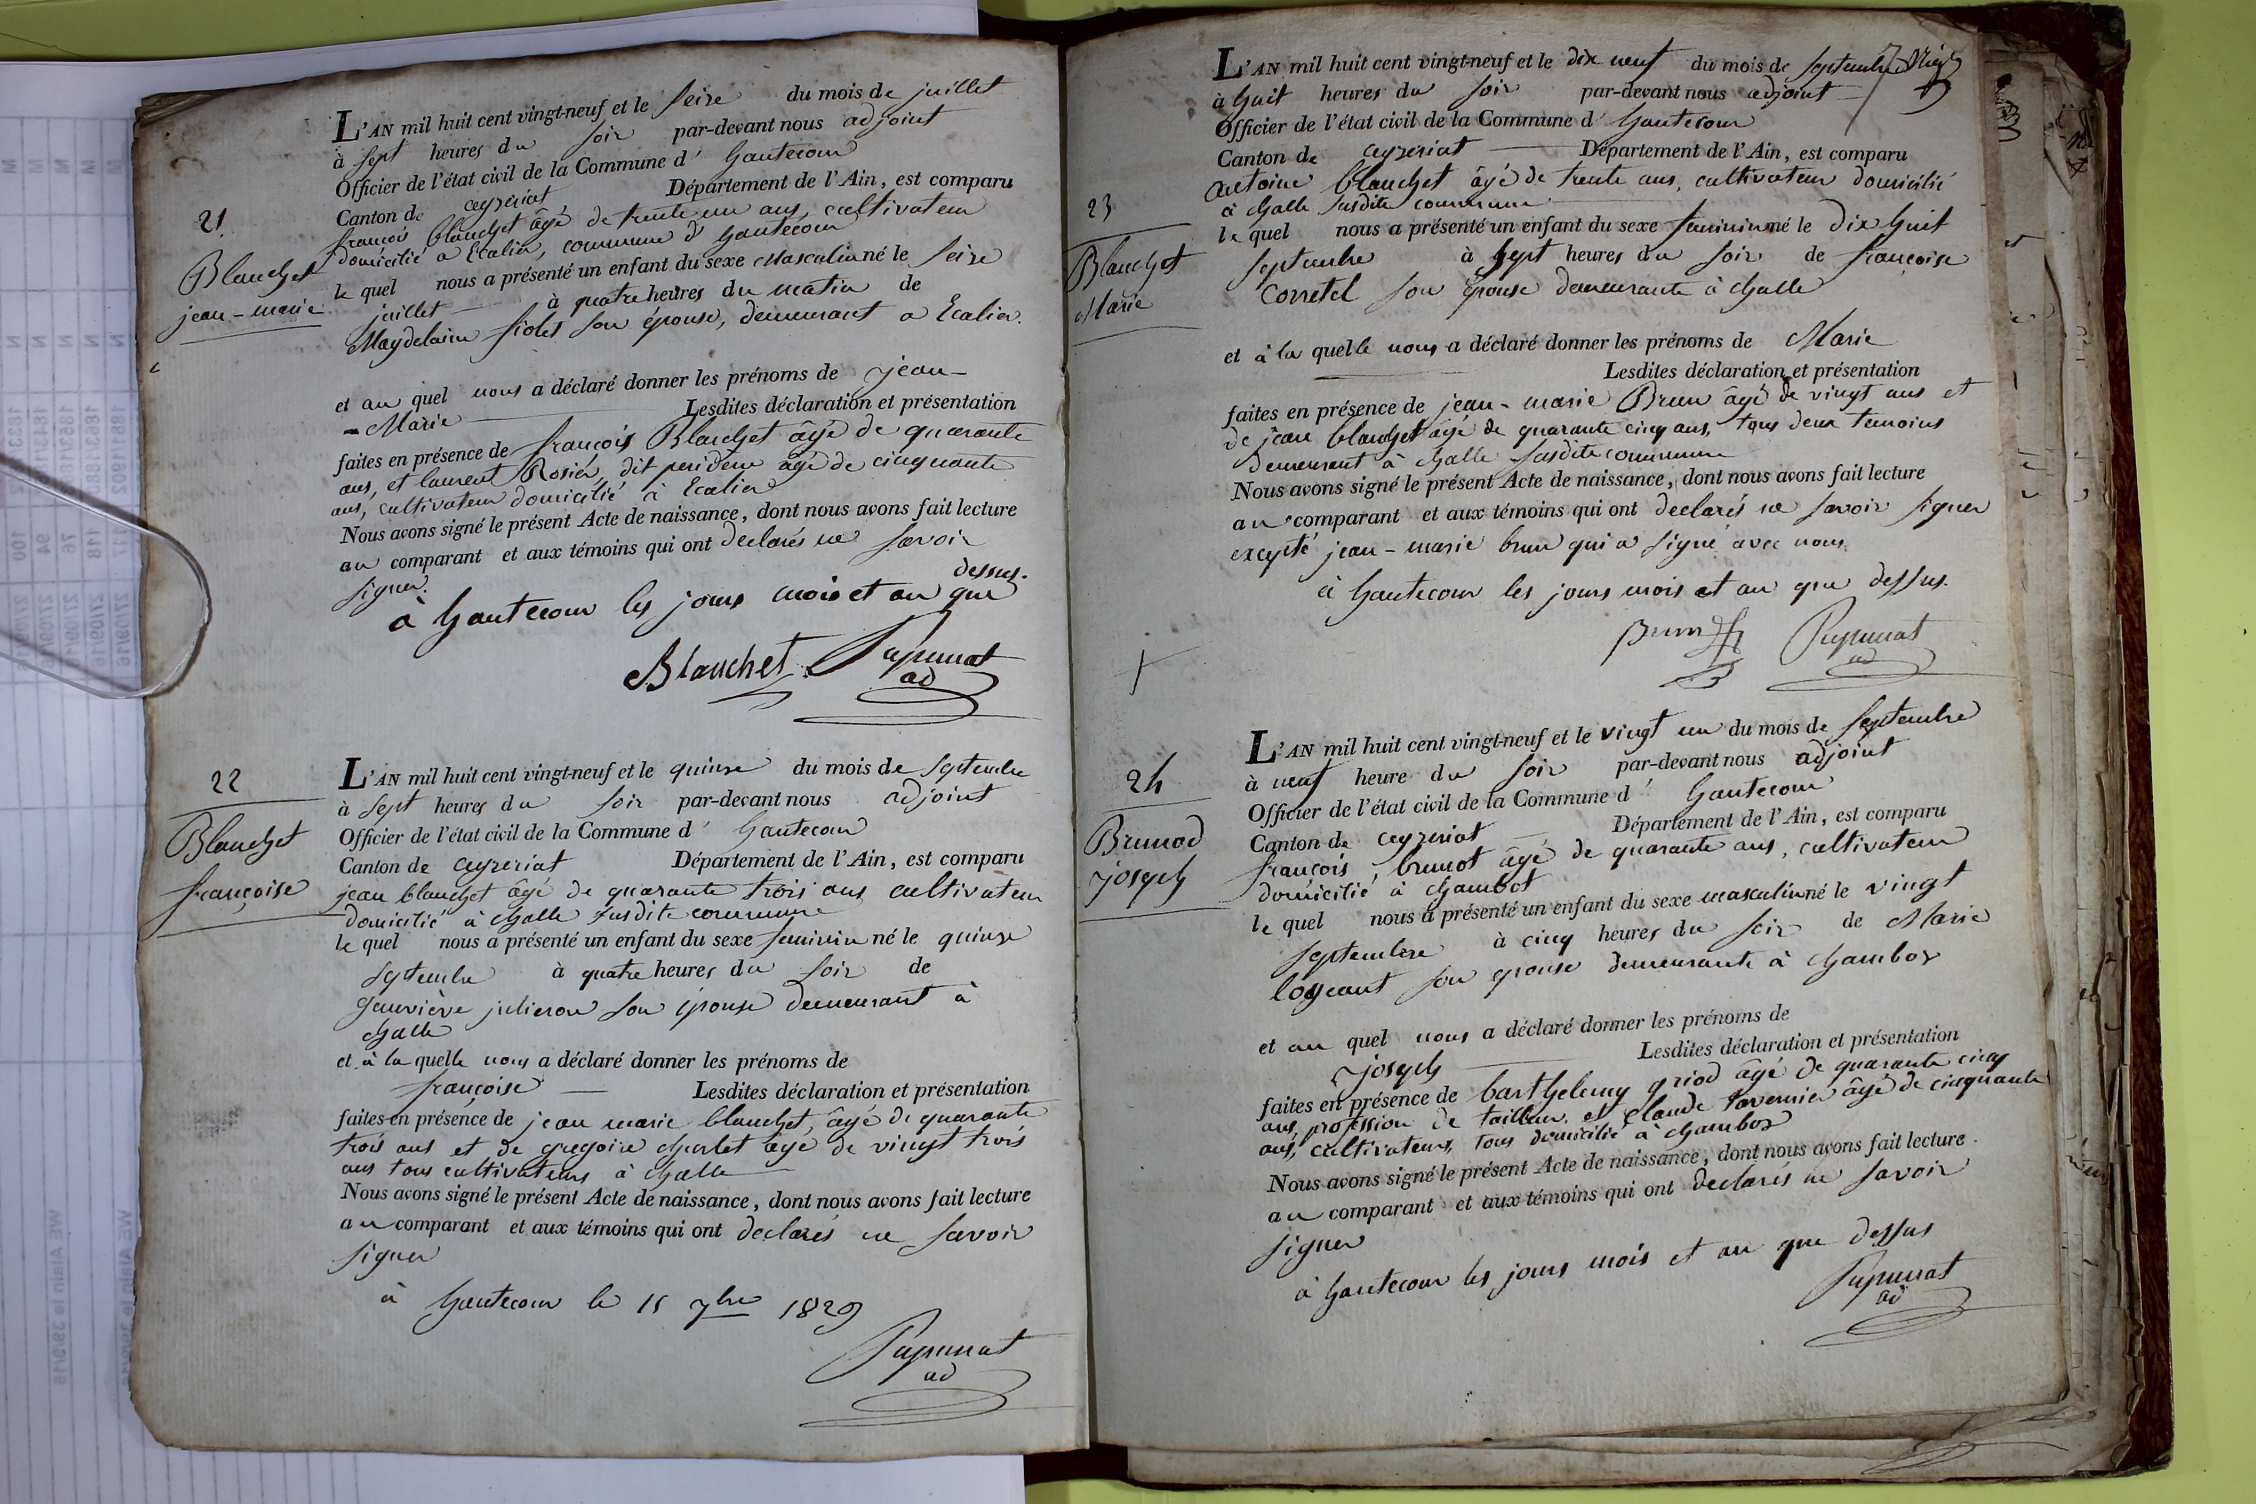 21.
Blanchet
jean-marie
L'AN mil huit cent vingt-neuf et le seize du mois de juillet
à sept heures du soir par-devant nous adjoint
Officier de l'état civil de la Commune d' hautecour
Canton de ceyzeriat Département de l'Ain, est comparu
françois blanchet âgé de trente un ans, cultivateur
domicilié a Ecalier, commune d' hautecour
le quel nous a présenté un enfant du sexe masculin né le seize
juillet à quatre heures du matin de
Magdelaine fiolet son épouse, demeurant a Ecalier.
et au quel nous a déclaré donner les prénoms de jean-
-Marie Lesdites déclaration et présentation
faites en présence de françois Blanchet âgé de quarante
ans, et laurent Rosier, dit âgé de cinquante
ans, cultivateur domicilié à Ecalier
Nous avons signé le présent Acte de naissance, dont nous avons fait lecture
au comparant et aux témoins qui ont declarés ne savoir
signer.
à hautecour les jours mois et an que dessus.
Blanchet Papunat
ad
22
Blanchet
françoise
L'AN mil huit cent vingt-neuf et le quinze du mois de septembre
à sept heures du soir par-devant nous adjoint
Officier de l'état civil de la Commune d' hautecour
Canton de ceyzeriat Département de l'Ain, est comparu
jean blanchet âgé de quarante trois ans cultivateur
domicilié à challe susdite commune
le quel nous a présenté un enfant du sexe feminin né le quinze
septembre à quatre heures du soir de
genviève julieron son épouse demeurant à
challe
et à la quelle nous a déclaré donner les prénoms de
françoise Lesdites déclaration et présentation
faites en présence de jean marie blanchet, âgé de quarante
trois ans et de gregoire charlet âgé de vingt trois
ans tous cultivateurs à challe
Nous avons signé le présent Acte de naissance, dont nous avons fait lecture
au comparant et aux témoins qui ont declarés ne savoir
signer
à hautecour le 15 7bre 1829
Papunat
ad
23
Blanchet
Marie
L'AN mil huit cent vingt-neuf et le dix neuf du mois de septembre
à huit heures du soir par-devant nous adjoint
Officier de l'état civil de la Commune d' hautecour
Canton de ceyzeriat Département de l'Ain, est comparu
antoine blanchet âgé de trente ans, cultivateur domicilié
à challe susdite commune
le quel nous a présenté un enfant du sexe feminin né le dix huit
septembre à sept heures du soir de françoise
Corretel son épouse demeurante à challe
et à la quelle nous a déclaré donner les prénoms de Marie
Lesdites déclaration et présentation
faites en présence de jean-marie Brun âgé de vingt ans et
de jean blanchet âgé de quarante cinq ans, tous deux temoins
demeurant à challe susdite commune
Nous avons signé le présent Acte de naissance, dont nous avons fait lecture
au comparant et aux témoins qui ont declarés ne savoir signer
excepté jean-marie brun qui a signé avec nous
à hautecour les jours mois et an que dessus.
Brun Papunat
ad
24
Brunod
joseph
L'AN mil huit cent vingt-neuf et le vingt un du mois de septembre
à neuf heure du soir par-devant nous adjoint
Officier de l'état civil de la Commune d' hautecour
Canton de ceyzeriat Département de l'Ain, est comparu
françois, brunot âgé de quarante ans, cultivateur
domicilié à chambot
le quel nous a présenté un enfant du sexe masculin né le vingt
septembre à cinq heures du soir de Marie
logeant son epouse demeurante à chambod
et au quel nous a déclaré donner les prénoms de
joseph Lesdites déclaration et présentation
faites en présence de barthelemy griod âgé de quarante cinq
ans, profession de tailleur. et Claude tavernier âgé de cinquante
ans, cultivateurs, tous domicilié à chambod
Nous avons signé le présent Acte de naissance, dont nous avons fait lecture
au comparant et aux témoins qui ont declarés ne savoir
signer
à hautecour les jours mois et an que dessus
Papunat
ad